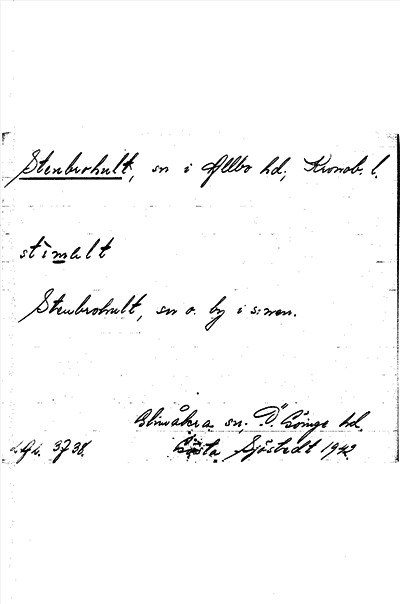 Stenbrohult, sn i Allbo hd; Kronob. l.
stìmalt
Stenbrohult, sn o. by i s:nen.
Glimåkra sn. Ö. Göinge hd.
3738. Gösta Sjöstedt 1942.